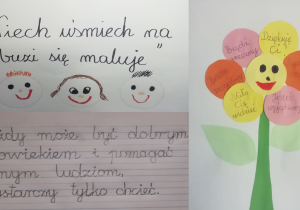 Niech uśmiech na
buzi się maluje"
każdy może być dobrym
człowiekiem i pomagać
innym ludziom,
wystarczy tylko chcieć.
Bądź
Dziękuję
Ci
Cię
Jesteś